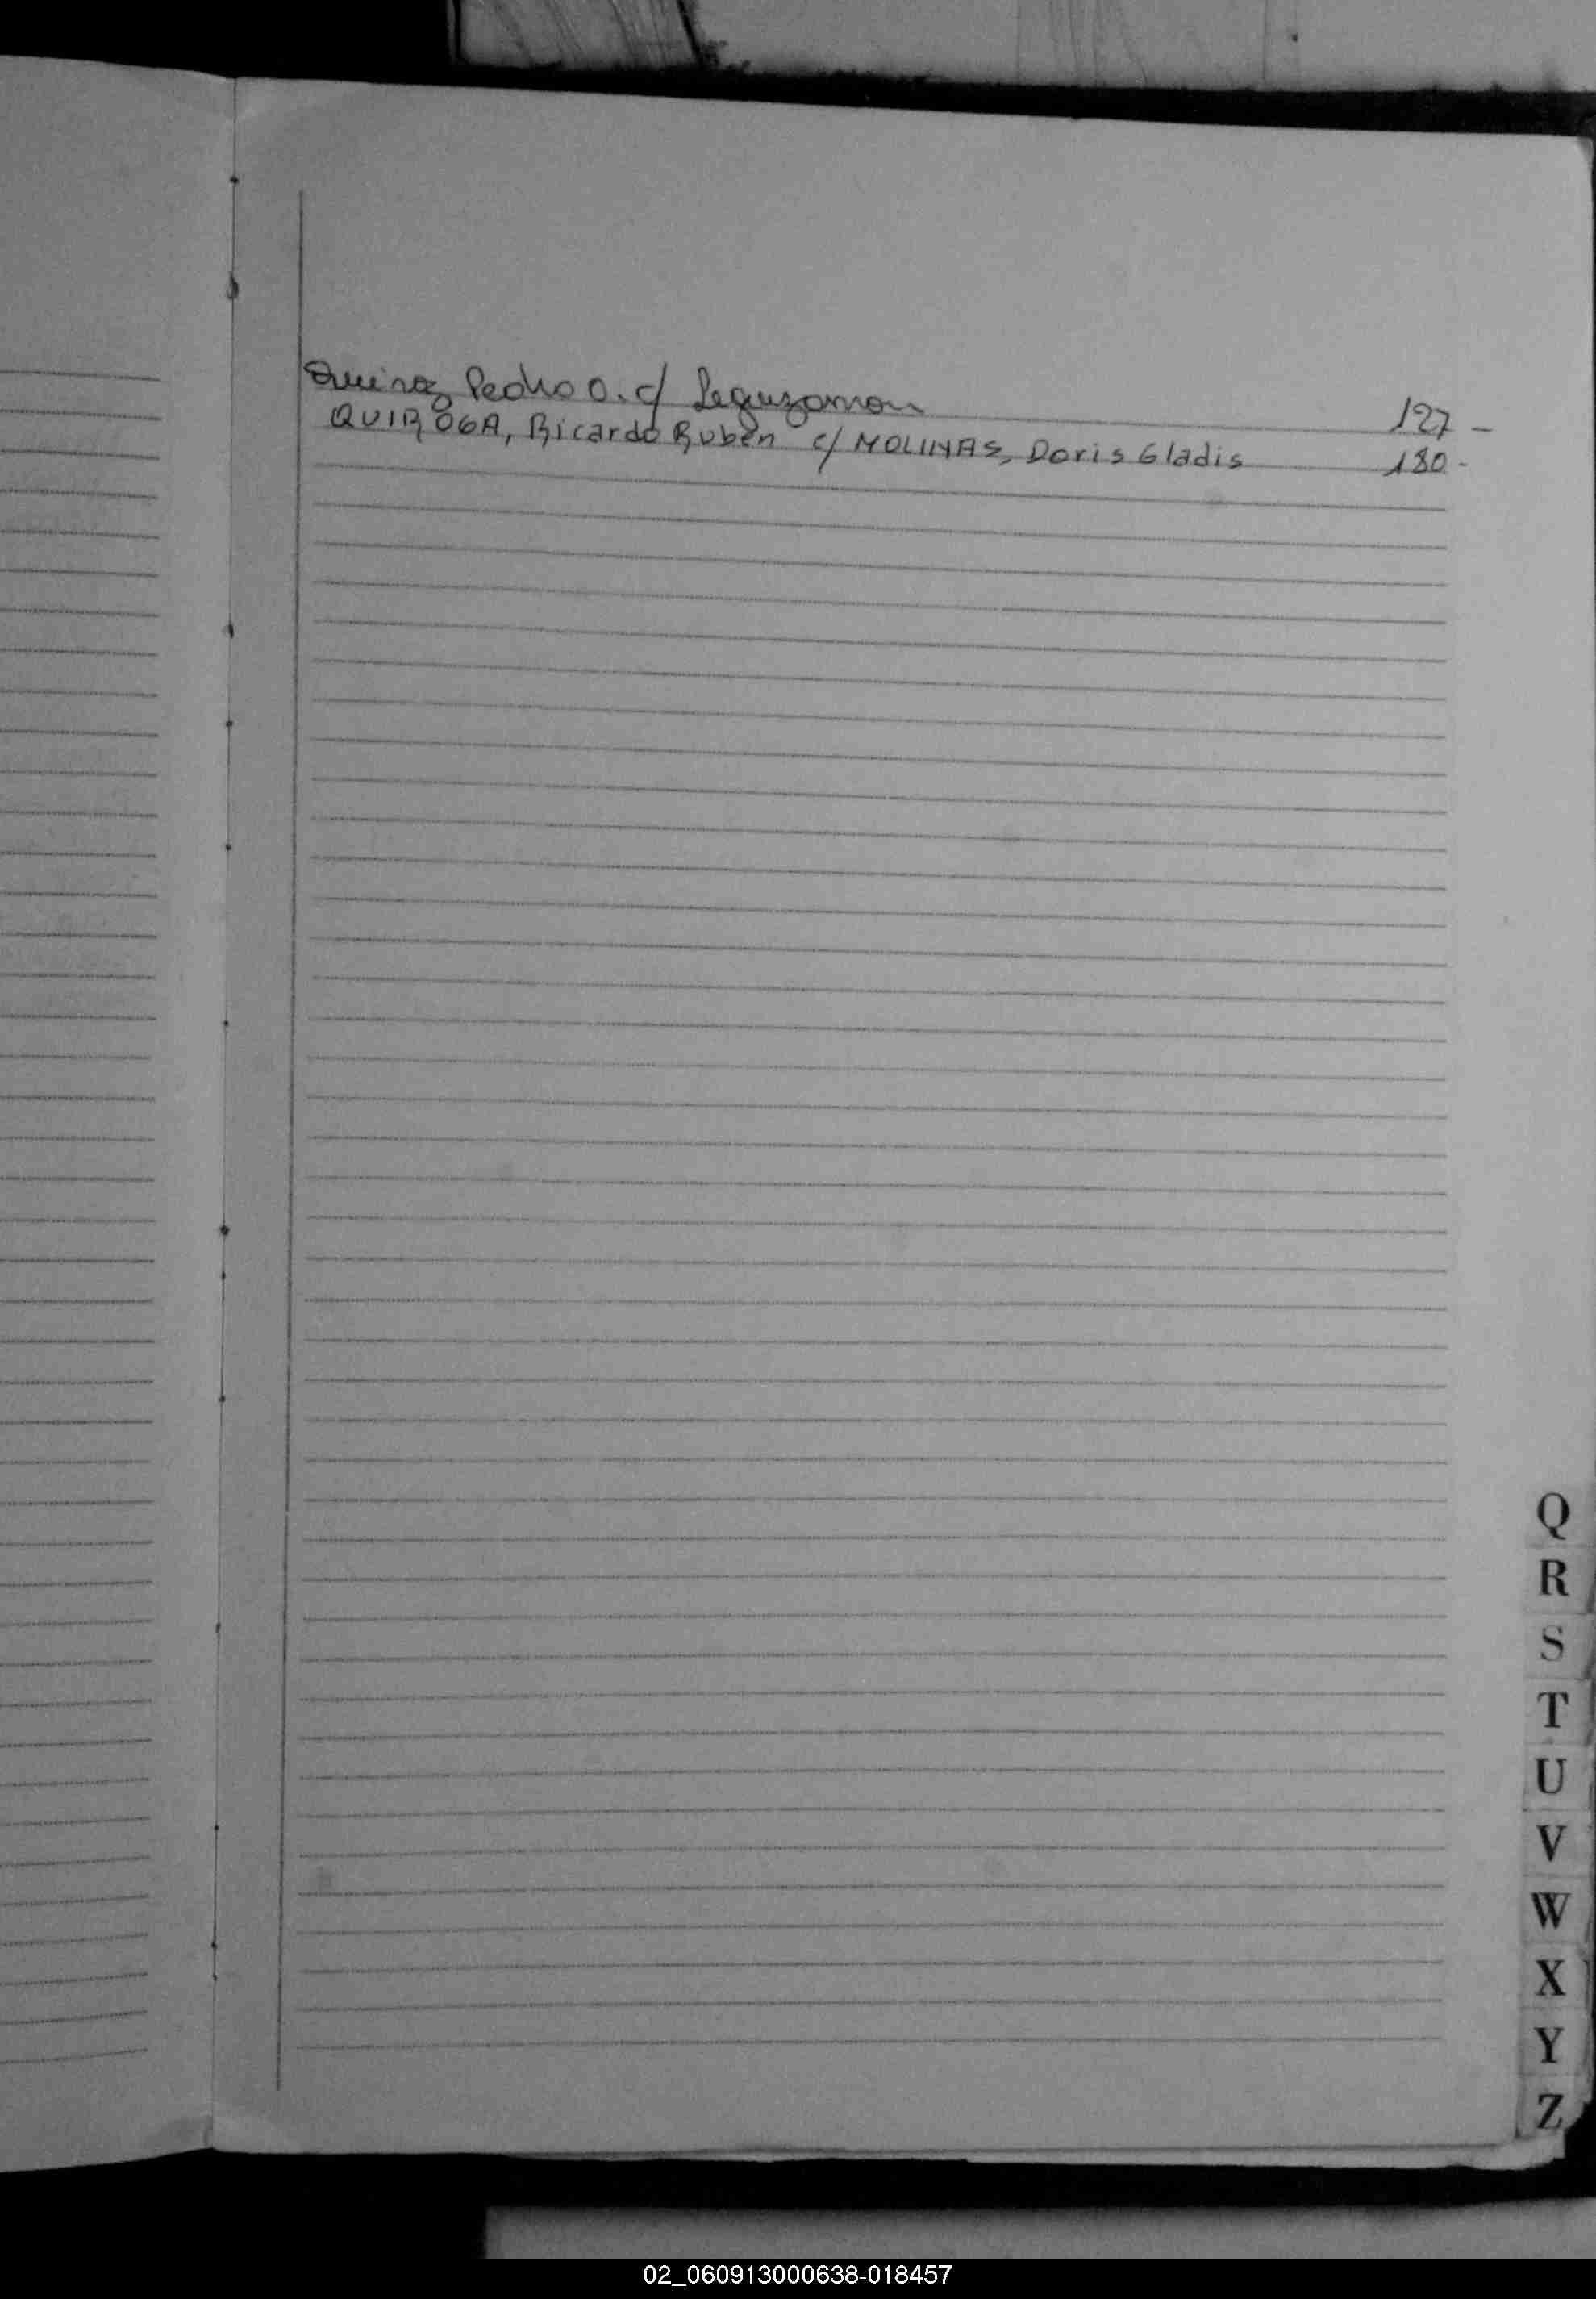 Queiroz Pedro O. c/ Leguizamon 127 -
QUIROGA, Ricardo Rubén c/ MOLINAS, Doris Gladis 180 -
Q
R
S
T
U
V
W
X
Y
Z
02_060913000638-018457